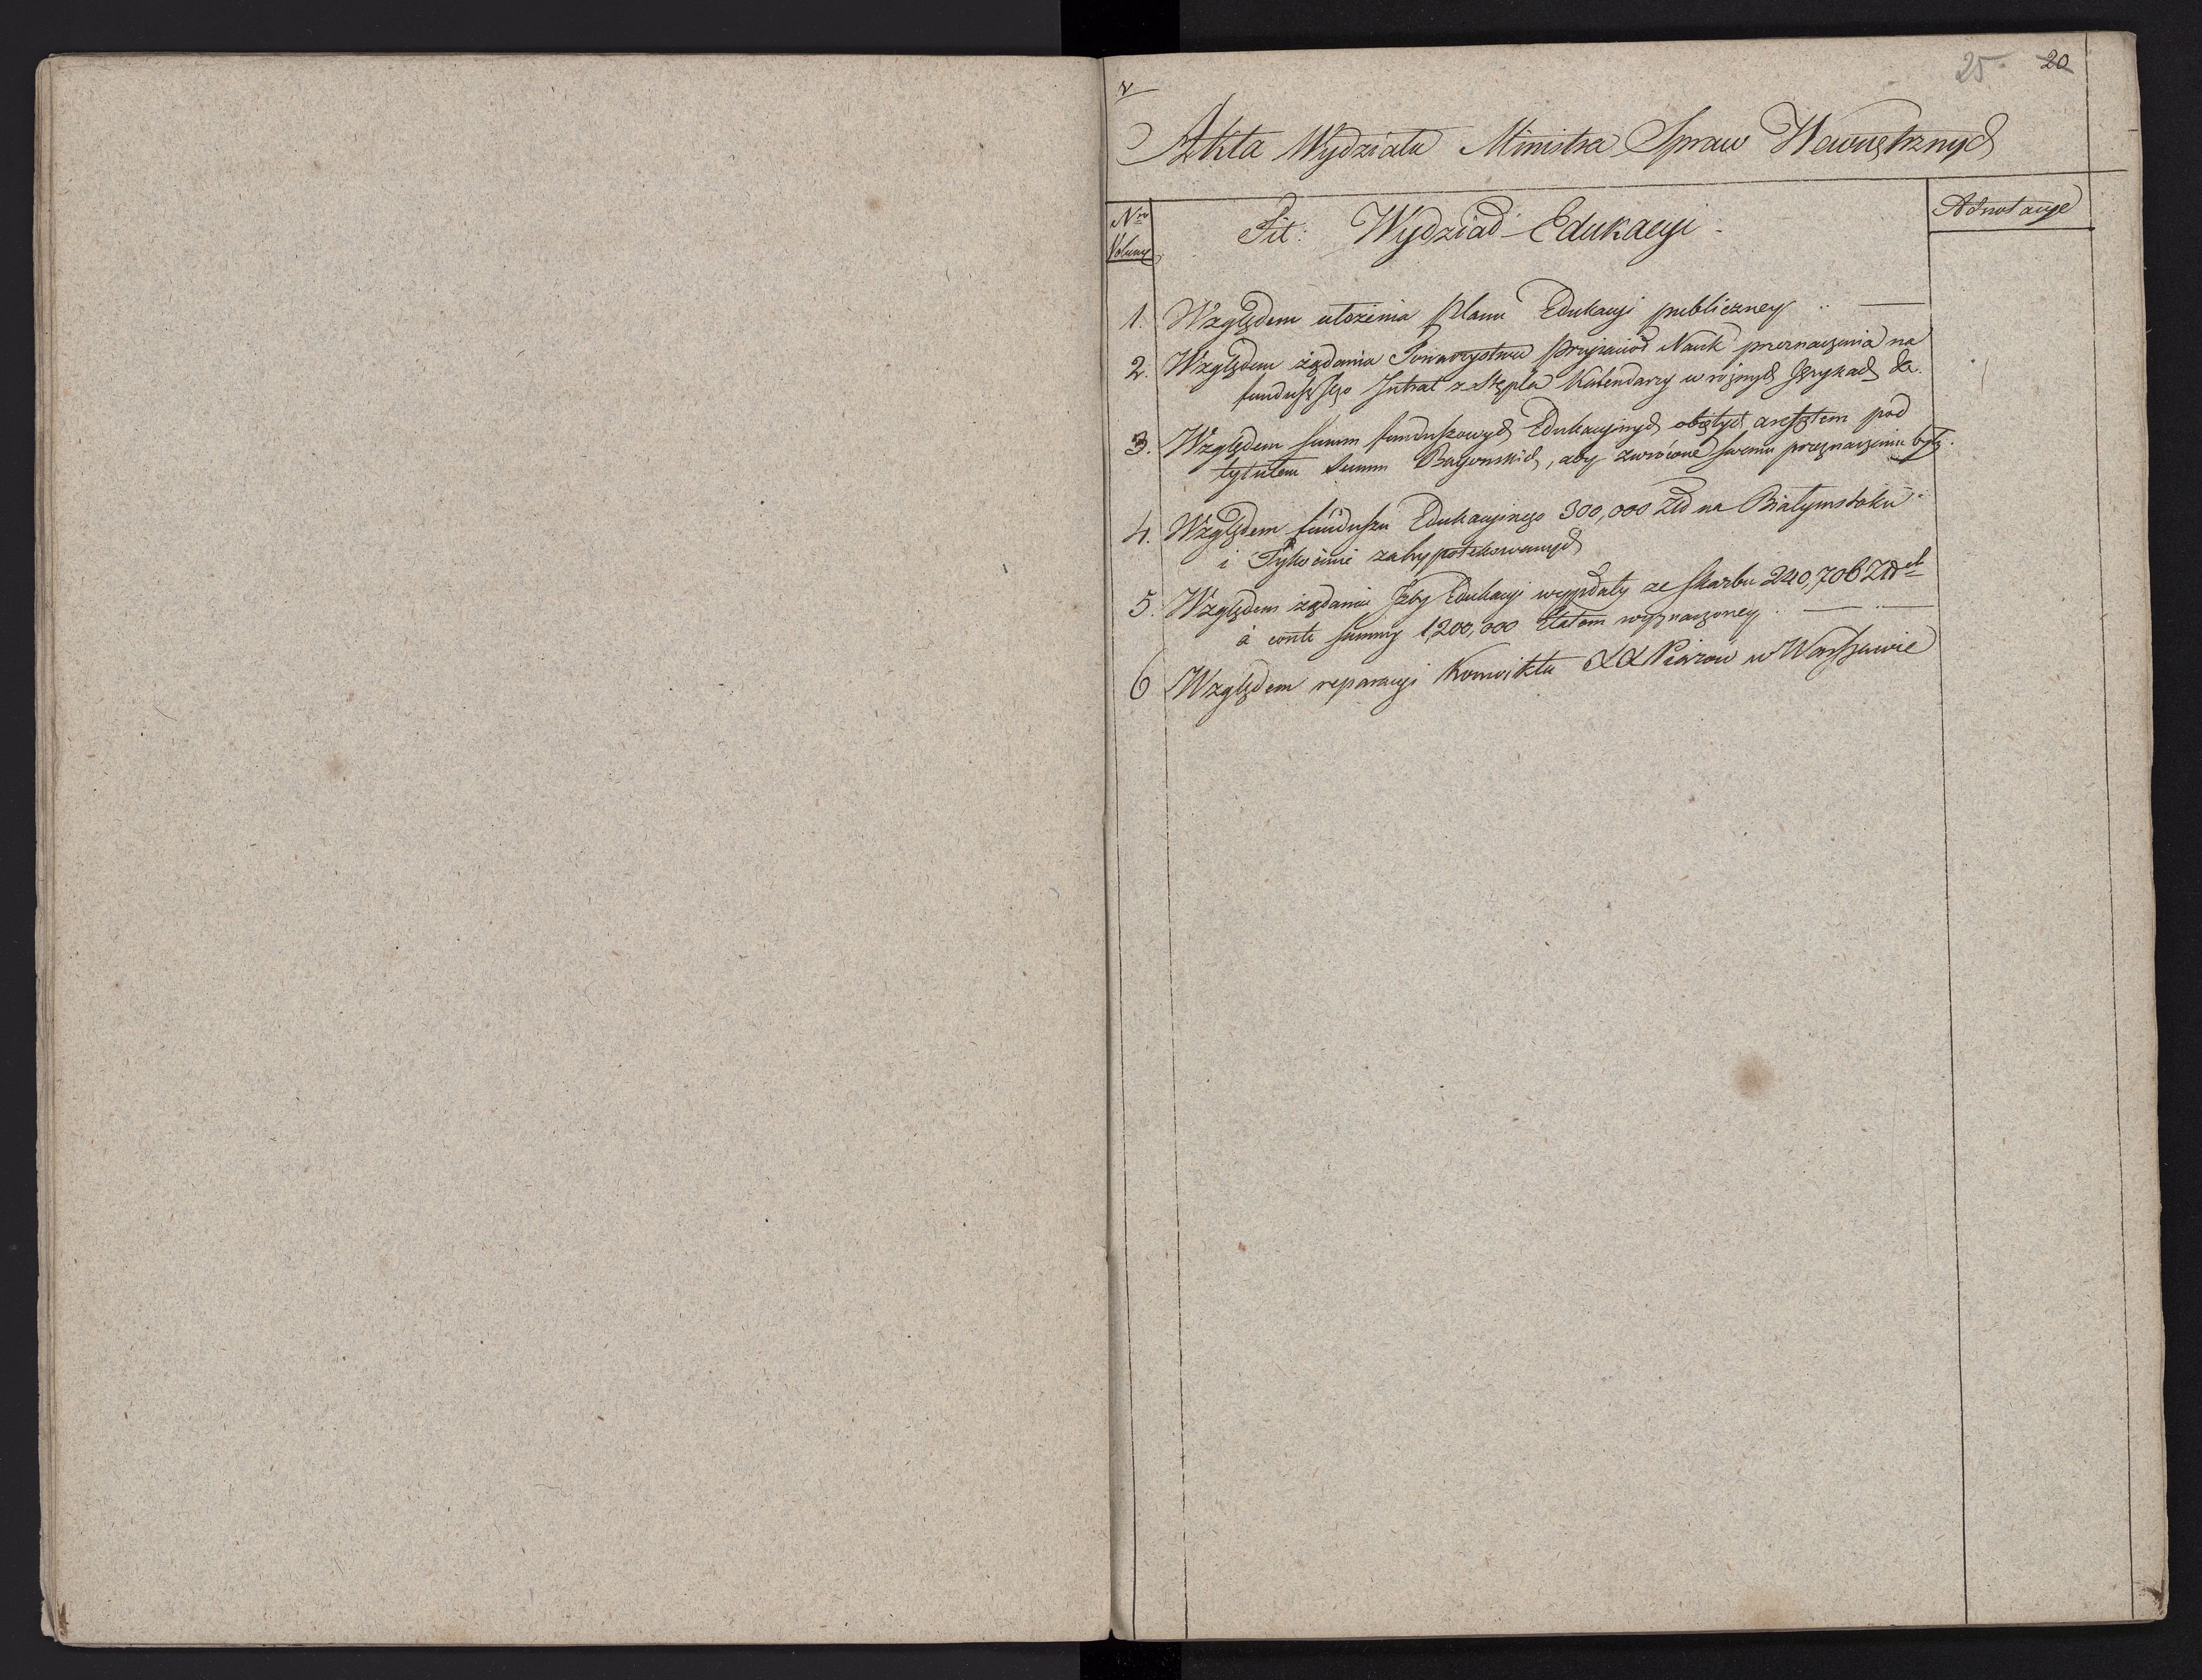 25. 20
V
Akta Wydziału Ministra Spraw Wewnętrznych
Nro Volumę
Tit: Wydział Edukacyi
Adnotacye
1. Względem ułożenia Planu Edukacyi publiczney
2. Względem żądania Towarzystwa Przyjaciół Nauk przeznaczenia na
fundusz Jego Intrat z Stępla Kalendarzy w różnych Językach &c.
3. Względem summ funduszowych Edukacyinych obiętych aresztem pod
tytułem Summ Bayońskich, aby zwrócone swemu przeznaczeniu były.
4. Względem funduszu Edukacyinego 300,000 Złł na Białymstoku
i Tykocinie zahypotekowanych
5. Względem żądania Izby Edukacyi wypłaty ze Skarbu 240,706 Złł
à conto summy 1,200,000 Etatem wyznaczoney
6 Względem reparacyi Konwiktu XX Piarów w Warszawie